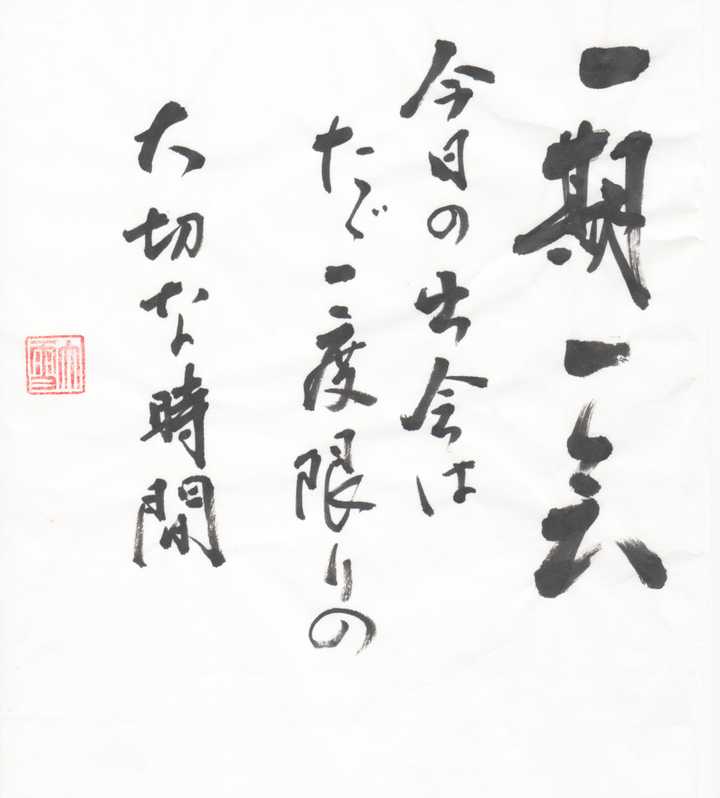 一期一会
今日の出会は
たゞ一度限りの
大切な時間